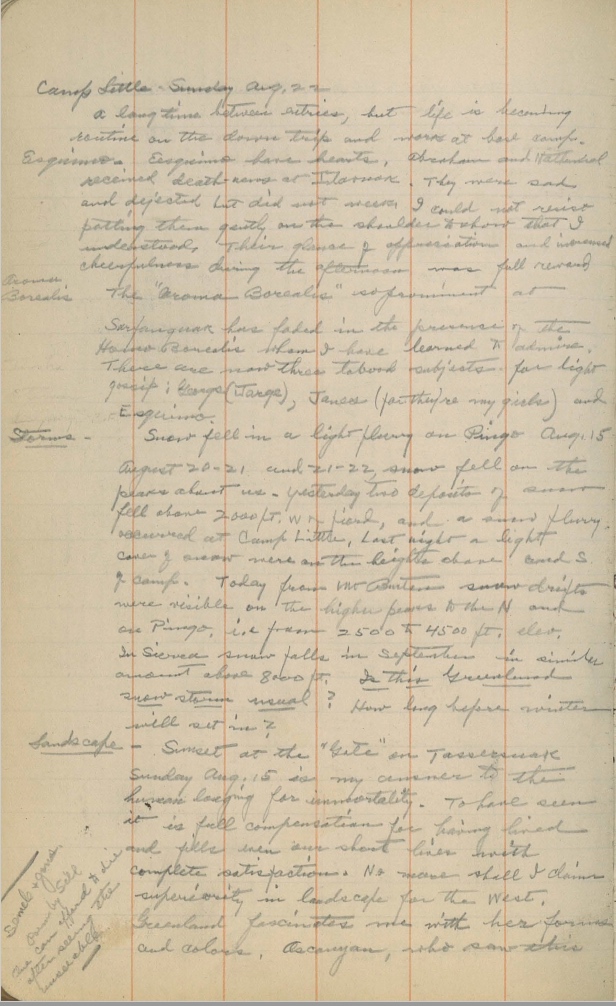 Camp Little - Sunday Aug. 22
A long time between entries, but life is becoming
routine on the down trip and work at base camp.
Esquimos. Esquimos have hearts. Abraham and
received death-news at They were sad
and dejected but did not weep. I could not resist
patting them gently on the shoulder to show that I
understood. Their glance of appreciation and increased
cheerfulness during the afternoon was full reward
Aroma
Borealis
The "Aroma Borealis" so prominent at
has faded in the presence of the
Homo Borealis whom I have learned to admire.
There are now three tabood subjects for light
gossip; (Jarge), (for they're my girls) and
Esquimo.
Storms - Snow fell in a light flurry on Pingo Aug. 15
August 20-21 and 21-22, snow fell on the
peaks about us. Yesterday two deposits of snow
fell above 2000 ft. W of fiord, and a snow flurry
occurred at Camp Little, Last night a light
cover of snow were on the heights above and S.
of camp. Today from Mt snow drifts
were visible on the higher peaks to the N and
on Pingo, i.e from 2500 to 4500 ft. elev.
In Sierra snow falls in September in similar
amount above 8000 ft. Is this Greenland
snow storm usual? How long before winter
will set in?
Landscape - Sunset at the "Gate" on
Sunday Aug. 15 is my answer to the
human longing for immortality. To have seen
it is full compensation for having lived
and fills even our short lives with
complete satisfaction. No more shall I claim
superiority in landscape for the West.
Greenland fascinates me with her forms
and colors. who saw this
drawn by
One can afford to die
after seeing the